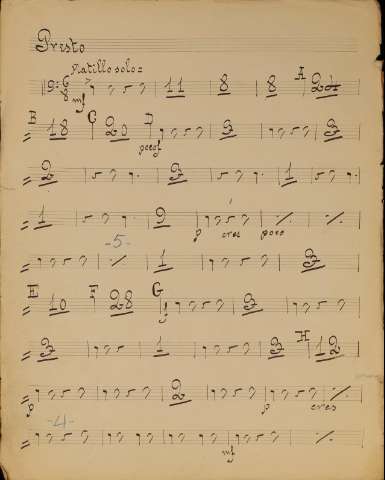 Presto
Platillo solo =
6 8 mf 11 8 8 A 24
B 18 C 20 D poco f 3 3
2 3 1
1 9 p cres poco
-5-
1 3
E 10 F 28 G f 3
3 1 3 H 12
p 2 p cres
-4-
mf